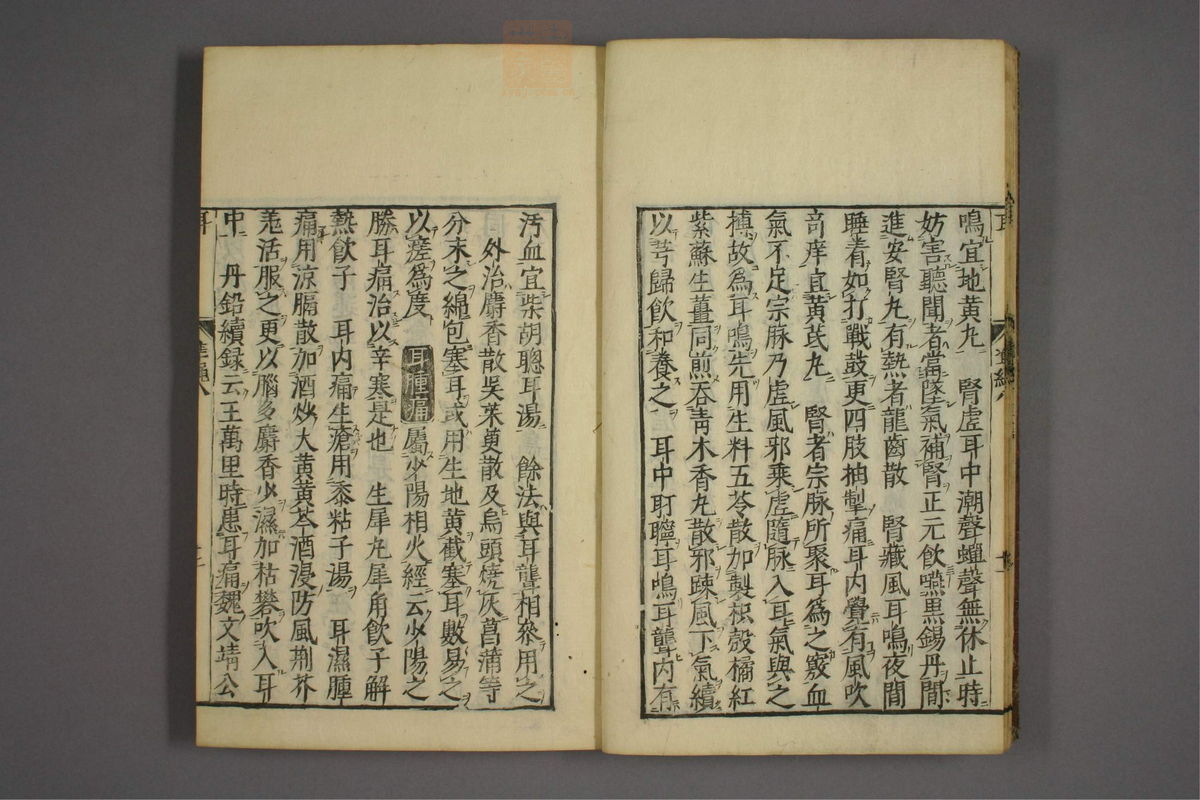 鳴宜地黄九　腎虚耳中潮聲蟬聲無休止時
妨害聽聞者當墜氣補腎正元飲嚥黒錫丹間
進安腎九有熱者龍齒散　腎藏風耳鳴夜間
睡着如打戰鼓更四肢抽掣痛耳内覺有風吹
竒痒宜黄芪九　腎者宗脉所聚耳爲之竅血
氣不足宗脉乃虚風邪乘虚隨脉入耳氣與之
搏故爲耳鳴先用生料五苓散加製枳殻橘紅
紫蘇生薑同煎吞青木香九散邪踈風下氣續
以芎歸飲和養之　耳中耵聹耳鳴耳聾内有
汚血宜柴胡聰耳湯　餘法與耳聾相叅用之
外治麝香散吳茱萸散及烏頭燒灰菖蒲等
分末之綿包塞耳或用生地黄截塞耳數易之
以瘥爲度　耳腫痛屬少陽相火經云少陽之
勝耳痛治以辛寒是也　生犀九犀角飲子解
熱飲子　耳内痛生瘡用黍粘子湯　耳濕腫
痛用凉膈散加酒炒大黄黄芩酒浸防風荆芥
羗活服之更以腦多麝香少濕加枯礬吹入耳
中　丹鉛續録云王萬里時患耳痛魏文靖公
耳